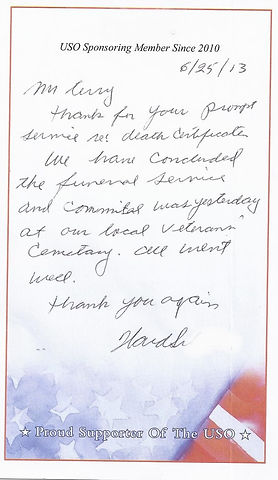 USO Sponsoring Member Since 2010
6/25/13
Thanks for your prompt
service re: death certificates
We have concluded
the funeral service
and committal was yesterday
at our local Veterans
Cemetary. All went
well.
Thank you again
☆ Proud Supporter Of The USO ☆